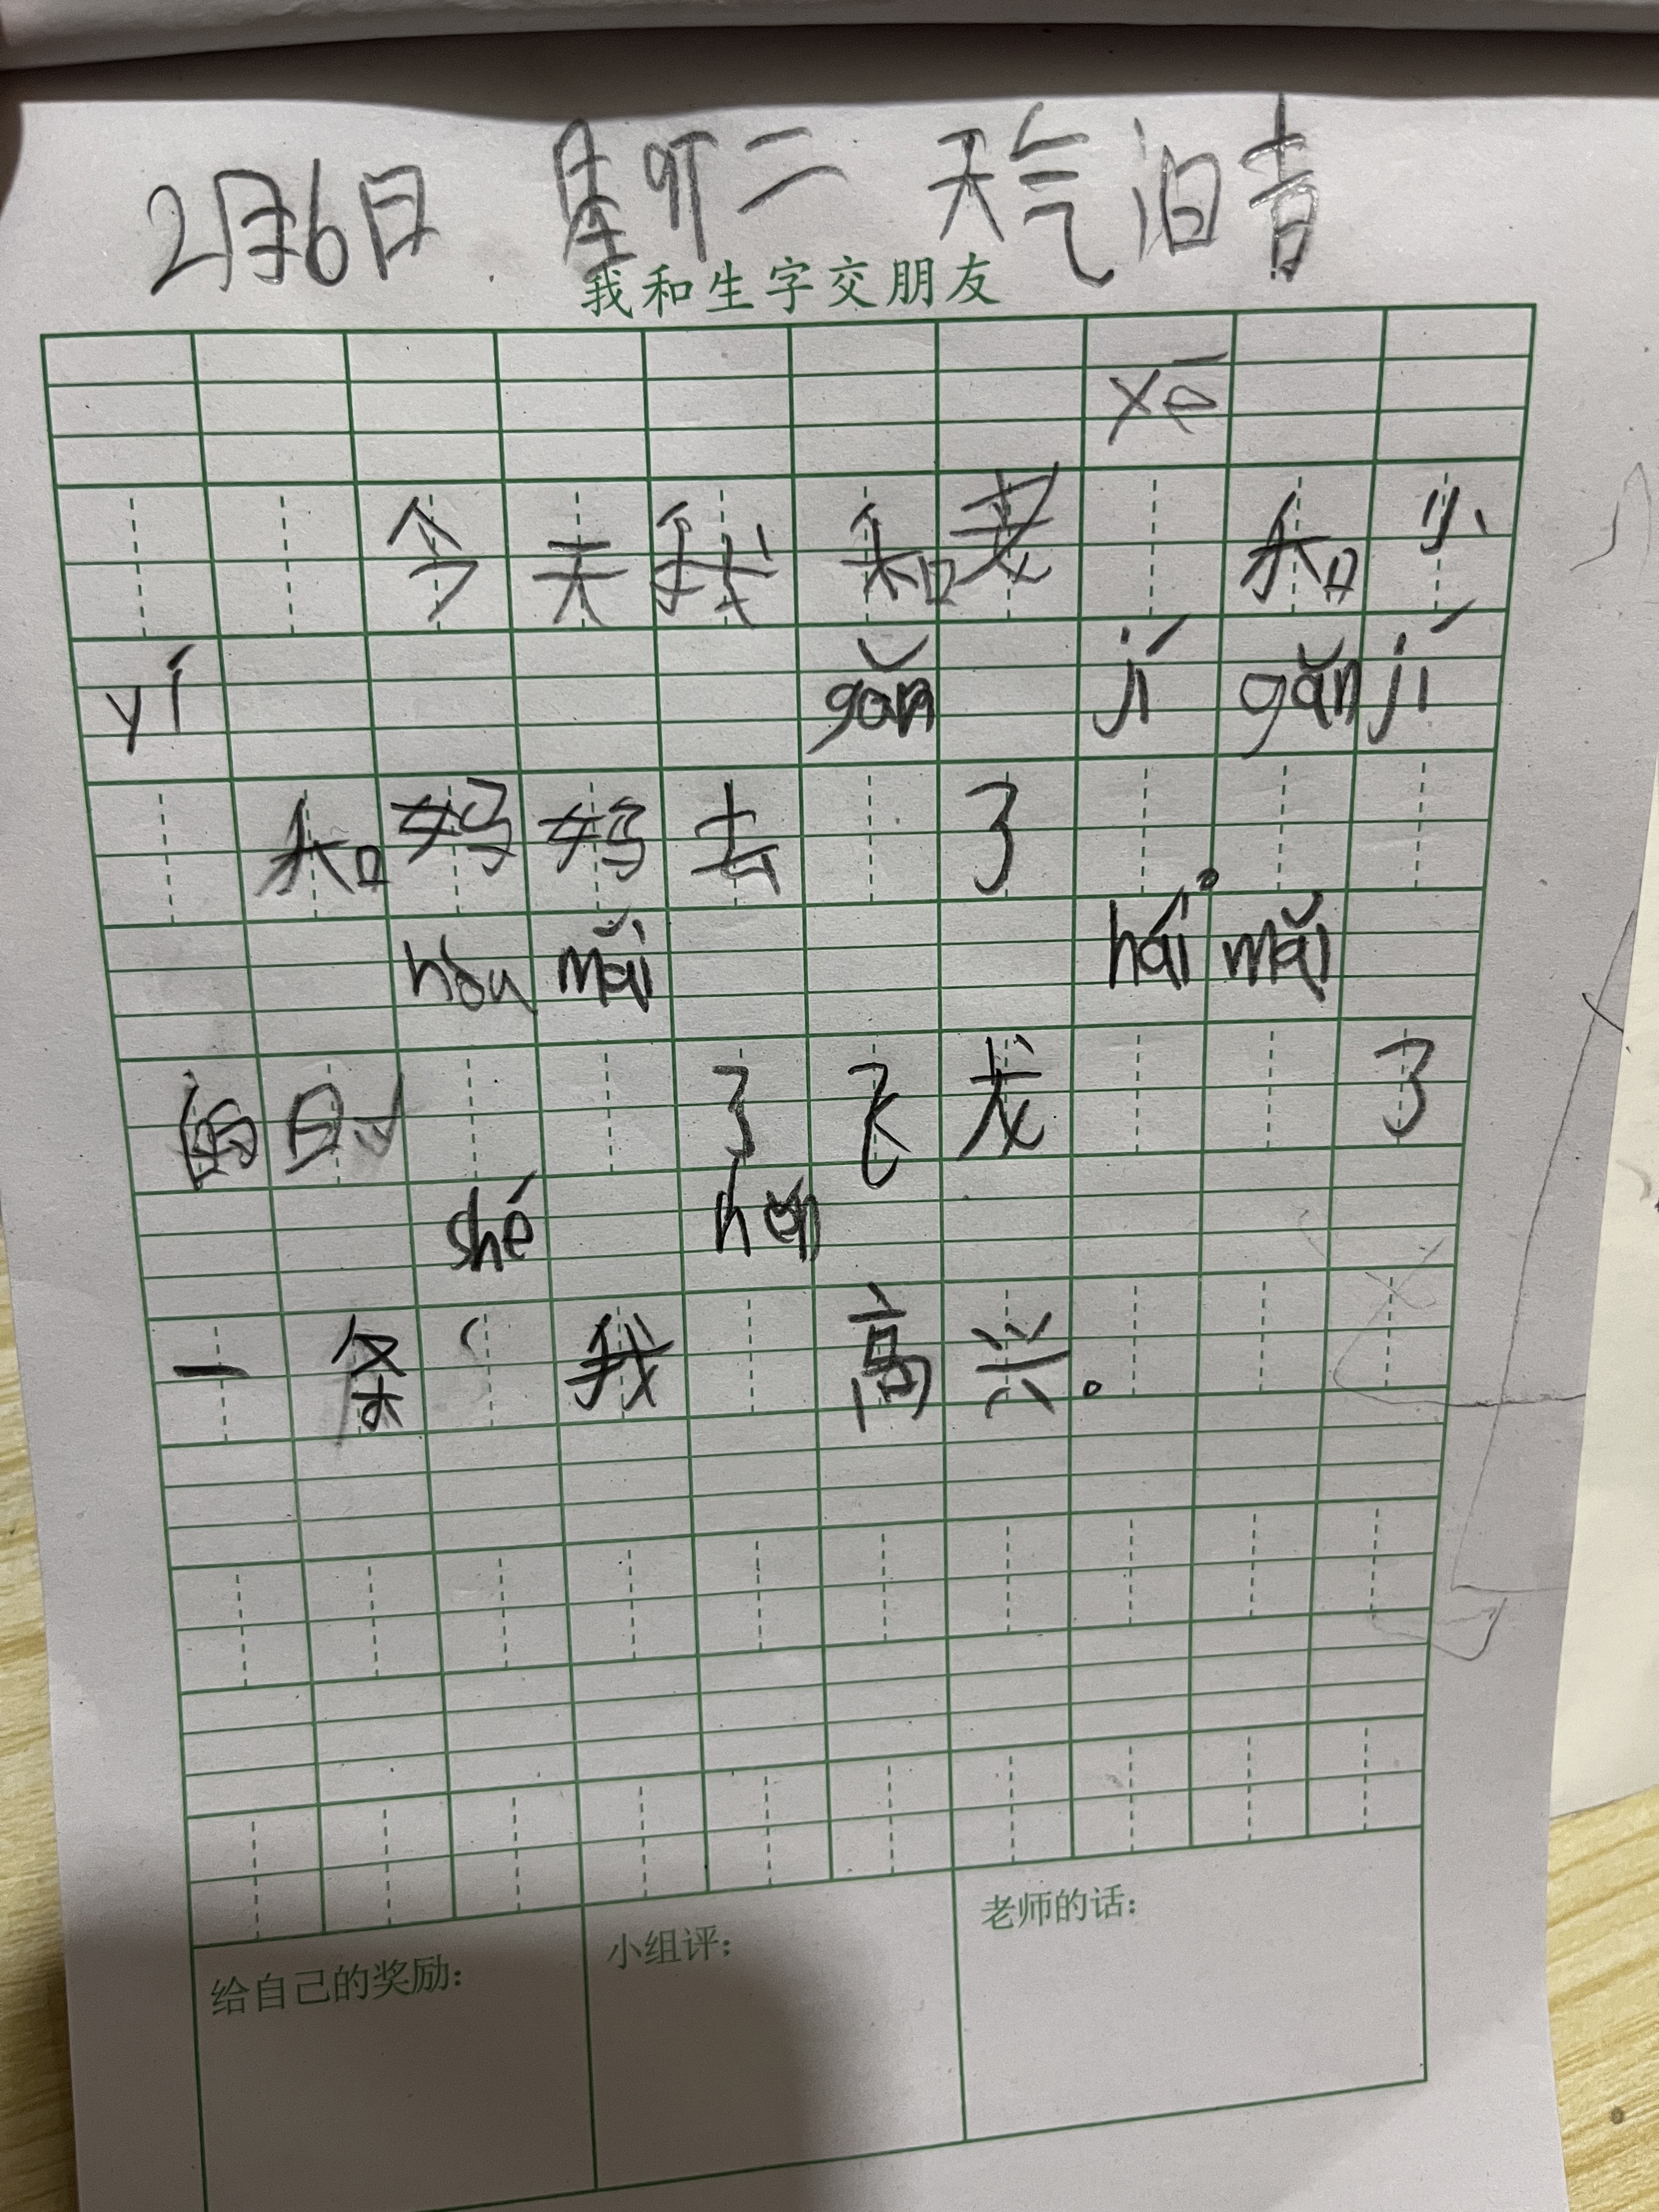 2月6日 星期二 天气 晴
我和生字交朋友
xē
今天我和老 和小
yí gǎn jí gǎn jí
和妈妈去 了 。
hòu mǎi hái mǎi
的时 了飞龙 了
shé hěn
一条 我 高兴。
给自己的奖励：
小组评：
老师的话：